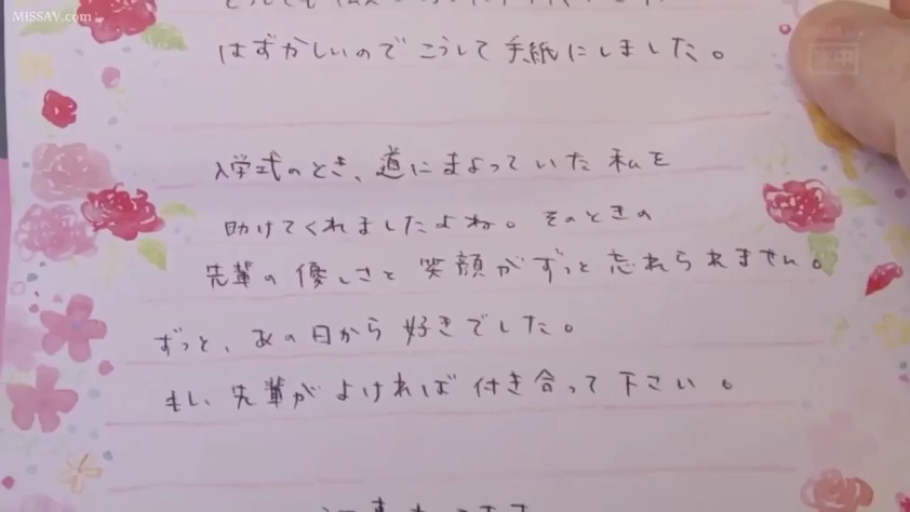 MISSAV.com
はずかしいのでこうして手紙にしました。
入学式のとき、道にまよっていた私を
助けてくれましたよね。そのときの
先輩の優しさと笑顔がずっと忘れられません。
ずっと、あの日から好きでした。
もし、先輩がよければ付き合って下さい。